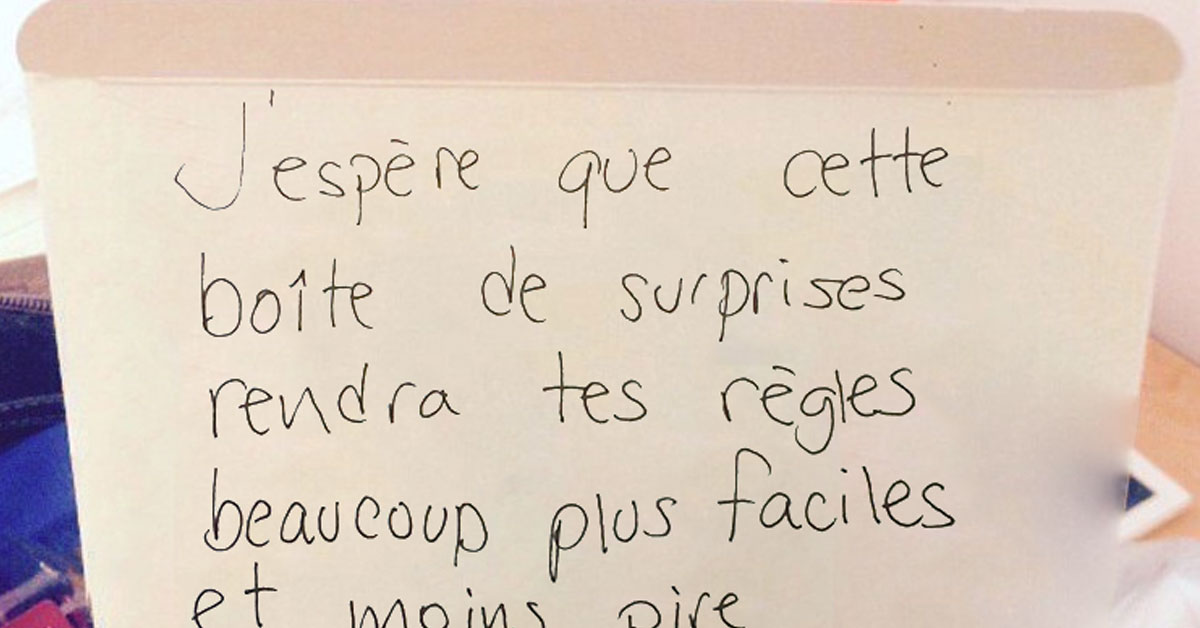 J'espère que cette
boîte de surprises
rendra tes règles
beaucoup plus faciles
et moins pire